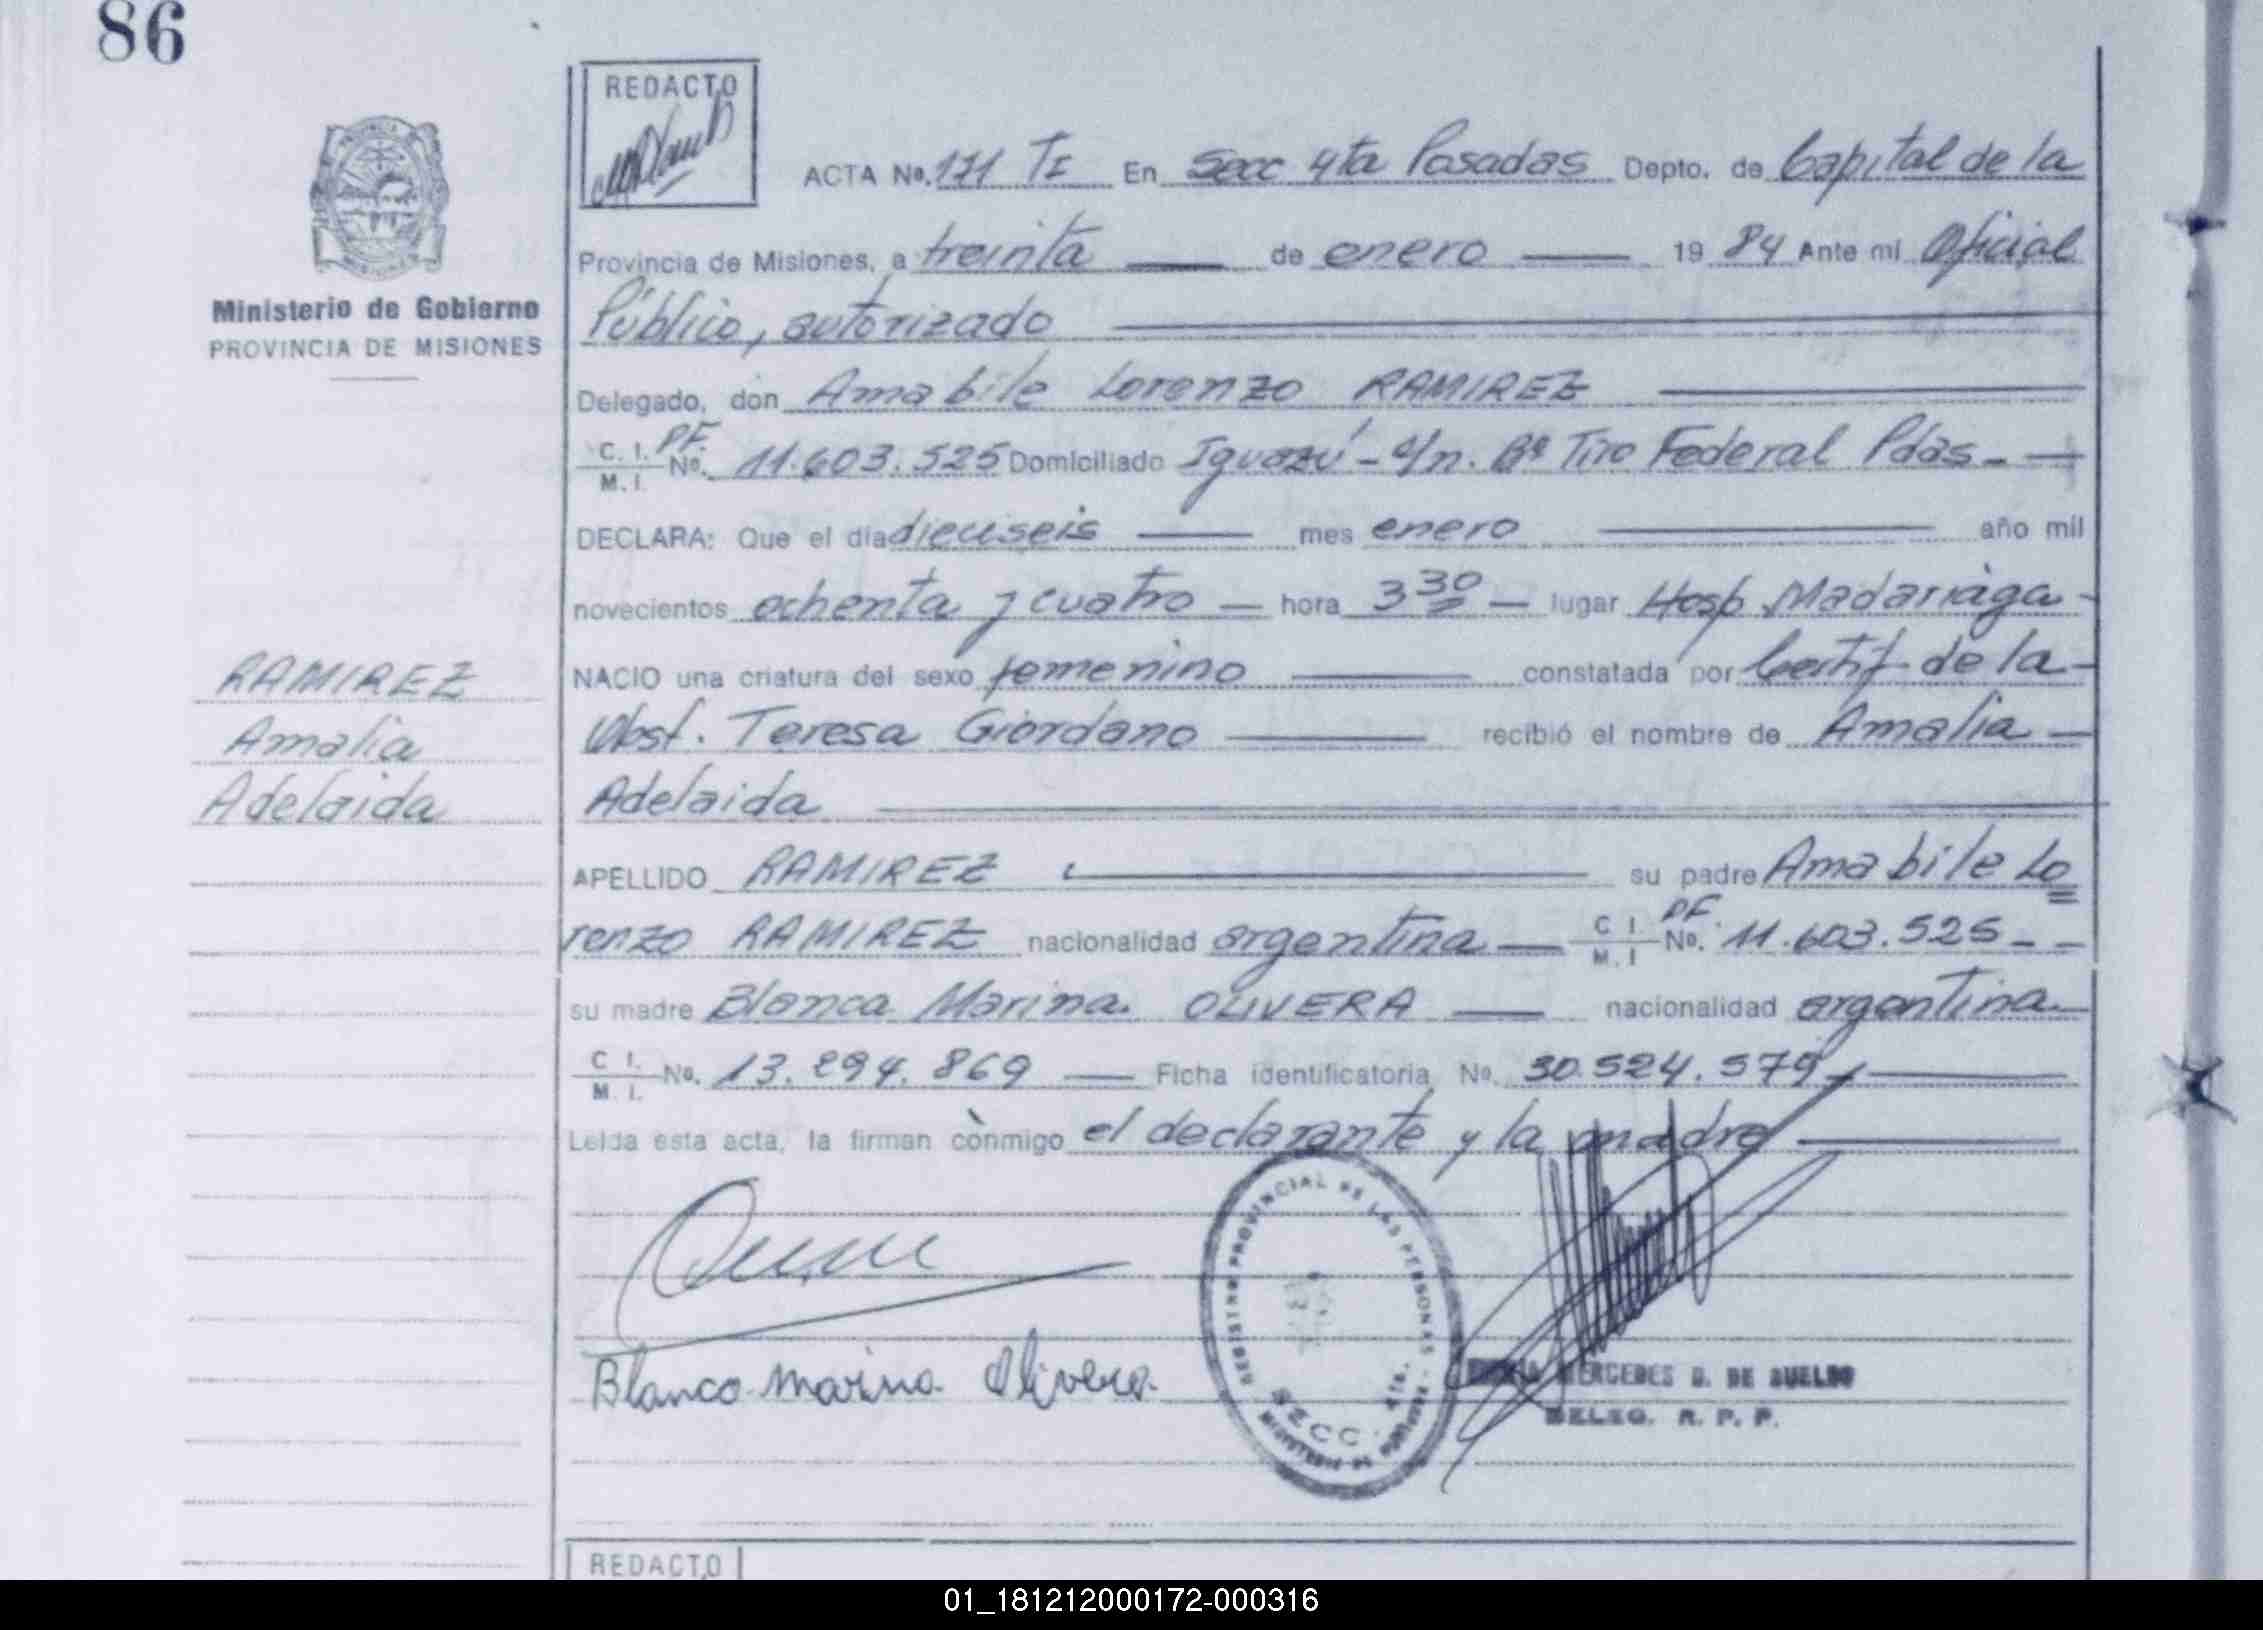 86
REDACTO
ACTA No. 171 TI En Secc 4ta Posadas Depto. de Capital de la
Provincia de Misiones, a treinta — de enero — 19 84 Ante mi Oficial
Ministerio de Gobierno
PROVINCIA DE MISIONES
Público, autorizado
Delegado, don Amabile Lorenzo RAMIREZ
C. I. M. I. PF. No. 11.603.525 Domiciliado Iguazú - s/n. Bº Tiro Federal Pdas. -
DECLARA: Que el dia dieciseis — mes enero — año mil
novecientos ochenta y cuatro — hora 3 30 — lugar Hosp Madariaga -
RAMIREZ
Amalia
Adelaida
NACIO una criatura del sexo femenino — constatada por Certif de la -
Obst. Teresa Giordano — recibió el nombre de Amalia —
Adelaida
APELLIDO RAMIREZ — su padre Amabile Lo
renzo RAMIREZ nacionalidad argentina — C I. M. I PF. No. 11.603.525 - -
su madre Blanca Marina OLIVERA — nacionalidad argentina
C I. M. I. No. 13.294.869 — Ficha identificatoria No. 30.524.579
Leida esta acta, la firman conmigo el declarante y la madre
REGISTRO PROVINCIAL DE LAS PERSONAS
SECC. 4ta.
Blanca Marina Olivera
MERCEDES D. DE SUELDO
DELEG. R. P. P.
REDACTO
01_181212000172-000316